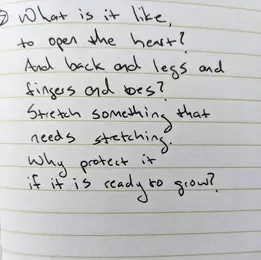 What is it like,
to open the heart?
And back and legs and
fingers and toes?
Stretch something that
needs stretching.
Why protect it
if it is ready to grow?